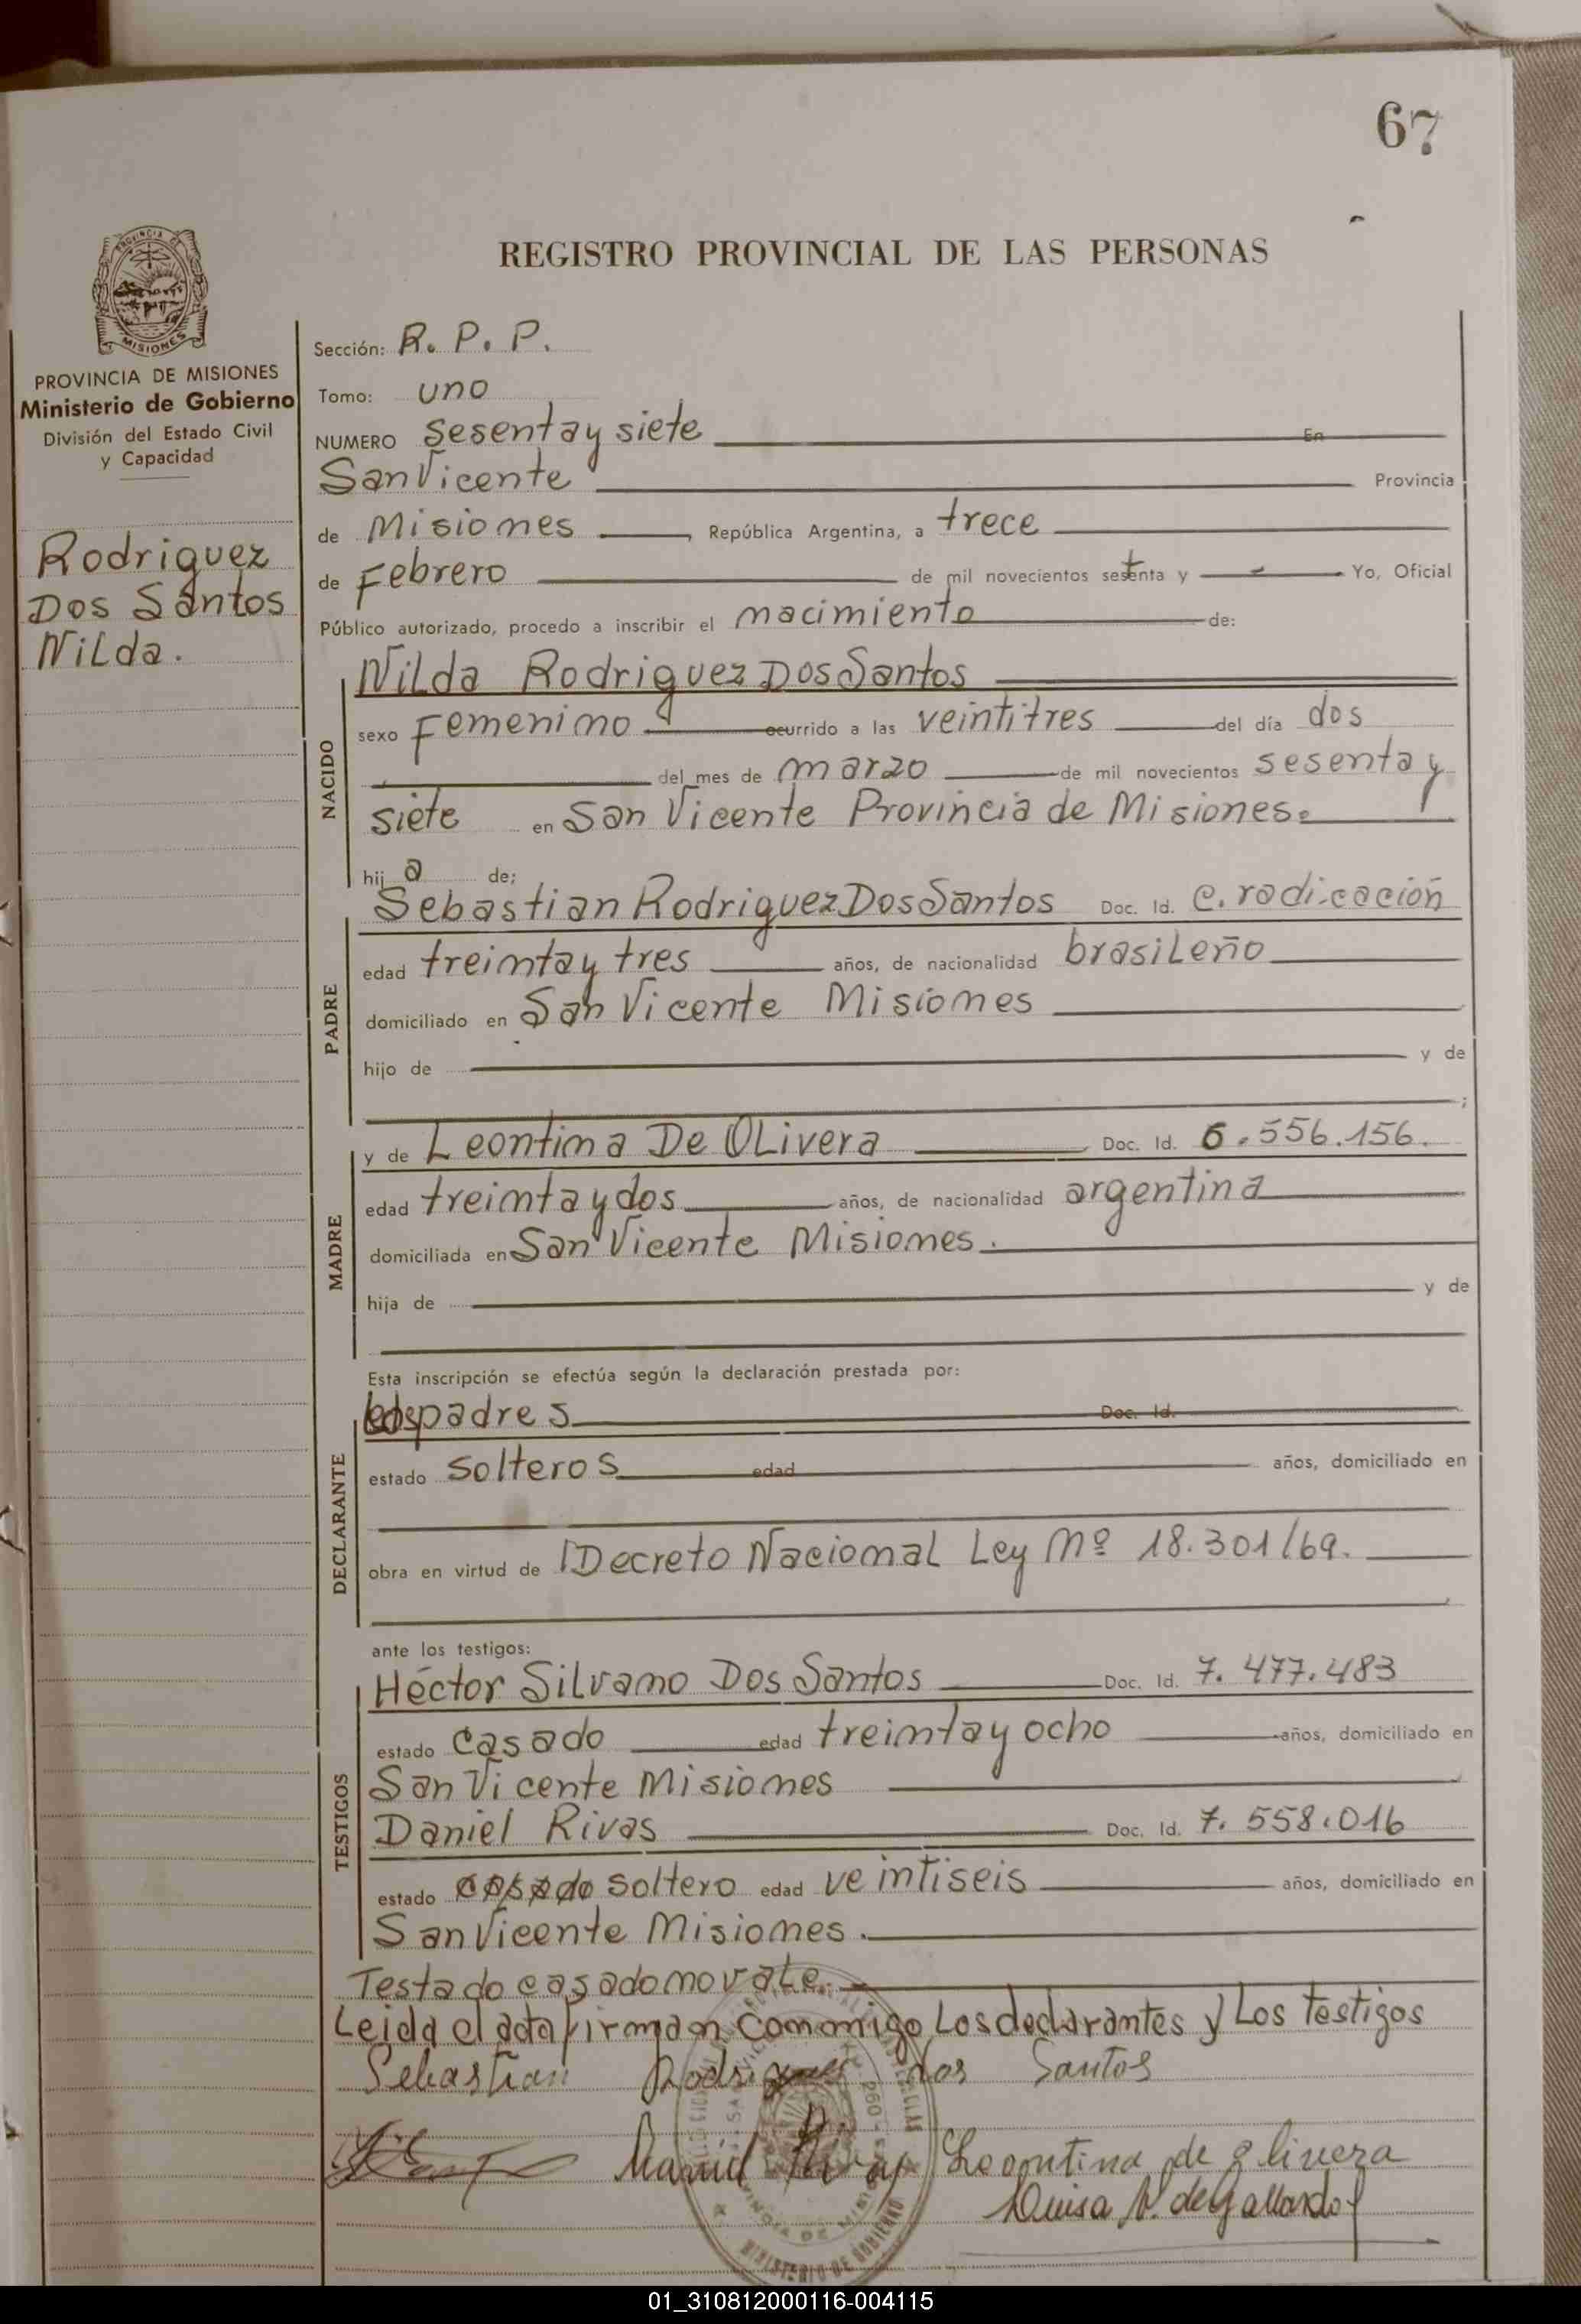 67
REGISTRO PROVINCIAL DE LAS PERSONAS
PROVINCIA DE
MISIONES
PROVINCIA DE MISIONES
Ministerio de Gobierno
División del Estado Civil
y Capacidad
Rodriguez
Dos Santos
Nilda.
Sección: R. P. P.
Tomo: uno
NUMERO Sesenta y siete En
San Vicente Provincia
de Misiones, República Argentina, a trece
de Febrero de mil novecientos setenta y Yo, Oficial
Público autorizado, procedo a inscribir el nacimiento de:
NACIDO
Nilda Rodriguez Dos Santos
sexo Femenino ocurrido a las veintitres del día dos
del mes de marzo de mil novecientos sesenta y
siete en San Vicente Provincia de Misiones.
hija de;
PADRE
Sebastian Rodriguez Dos Santos Doc. Id. C. radicación
edad treinta y tres años, de nacionalidad brasileño
domiciliado en San Vicente Misiones
hijo de y de
;
MADRE
y de Leontina De Olivera Doc. Id. 6.556.156.
edad treinta y dos años, de nacionalidad argentina
domiciliada en San Vicente Misiones.
hija de y de
Esta inscripción se efectúa según la declaración prestada por:
DECLARANTE
los padres Doc. Id.
estado solteros edad años, domiciliado en
obra en virtud de Decreto Nacional Ley Nº 18.301/69.
ante los testigos:
TESTIGOS
Héctor Silvano Dos Santos Doc. Id. 7.477.483
estado casado edad treinta y ocho años, domiciliado en
San Vicente Misiones
Daniel Rivas Doc. Id. 7.558.016
estado casado soltero edad veintiseis años, domiciliado en
San Vicente Misiones.
Testado casado no vale.
Leida el acta firman conmigo Los declarantes y Los testigos
Sebastian Rodriguez dos Santos
Daniel Rivas Leontina de olivera
Luisa N. de Gallardo
MINISTERIO DE GOBIERNO
PROVINCIA DE MISIONES
01_310812000116-004115